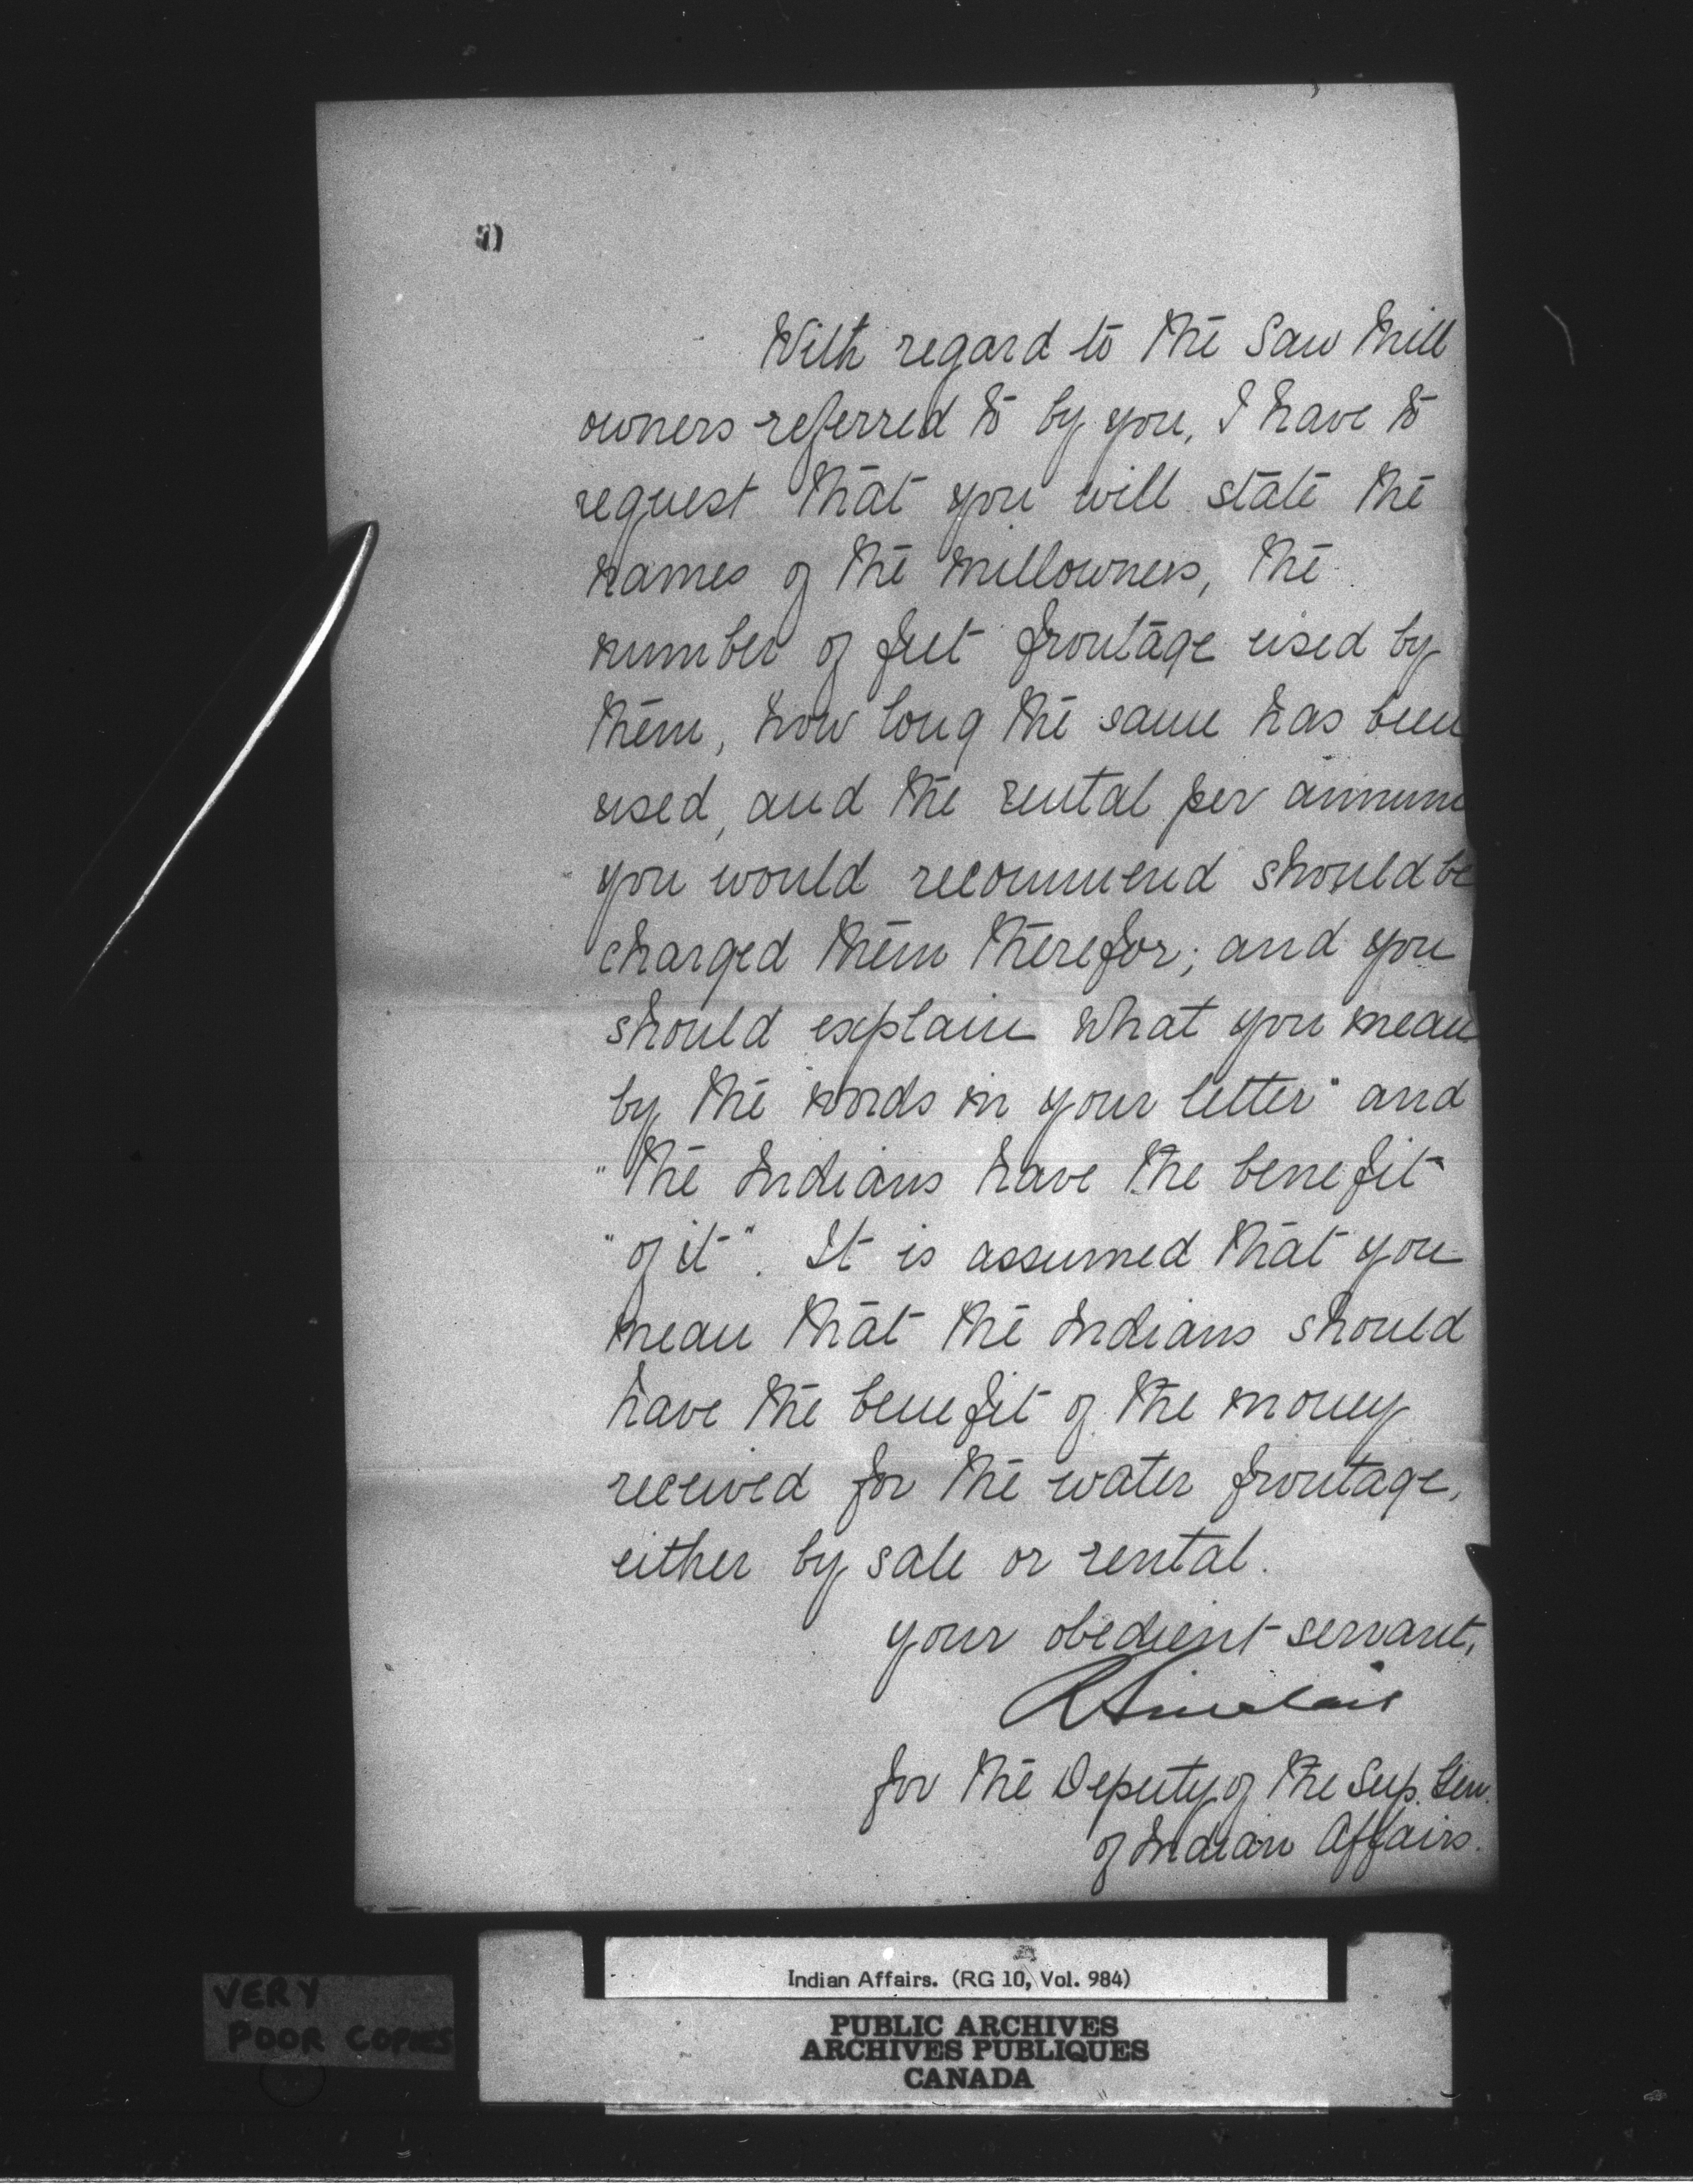 With regard to the Saw Mill
owners referred to by you, I have to
request that you will state the
names of the millowners, the
number of feet frontage used by
them, how long the same has been
used, and the rental per annum
you would recommend should be
charged them therefor; and you
should explain what you mean
by the words in your letter "and
"the Indians have the benefit
"of it". It is assumed that you
mean that the Indians should
have the benefit of the money
received for the water frontage,
either by sale or rental.
your obedient servant,
R Sinclair
for the Deputy of the Sup. Gen.
of Indian Affairs.
VERY
POOR COPIES
Indian Affairs. (RG 10, Vol. 984)
PUBLIC ARCHIVES
ARCHIVES PUBLIQUES
CANADA